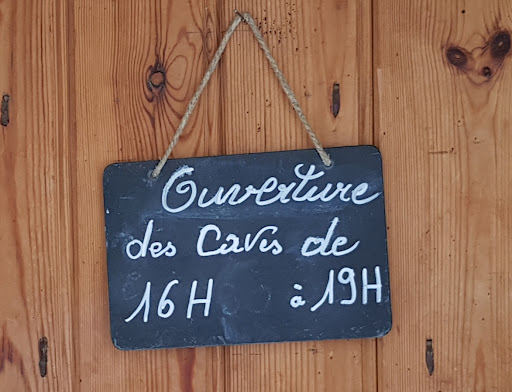 Ouverture
des Caves de
16H à 19H